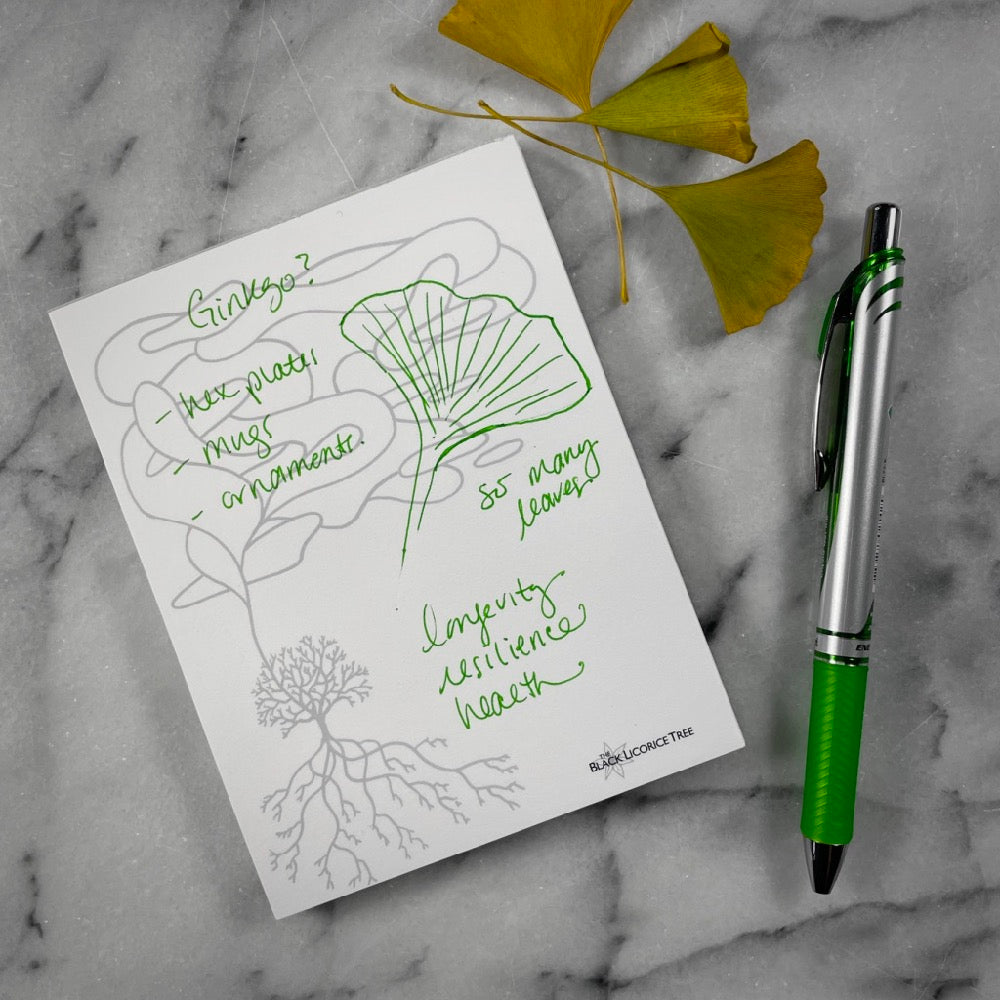 Ginkgo?
- hex plates
- mugs
- ornaments.
so many
leaves
longevity
resilience
health
THE
BLACK LICORICE TREE